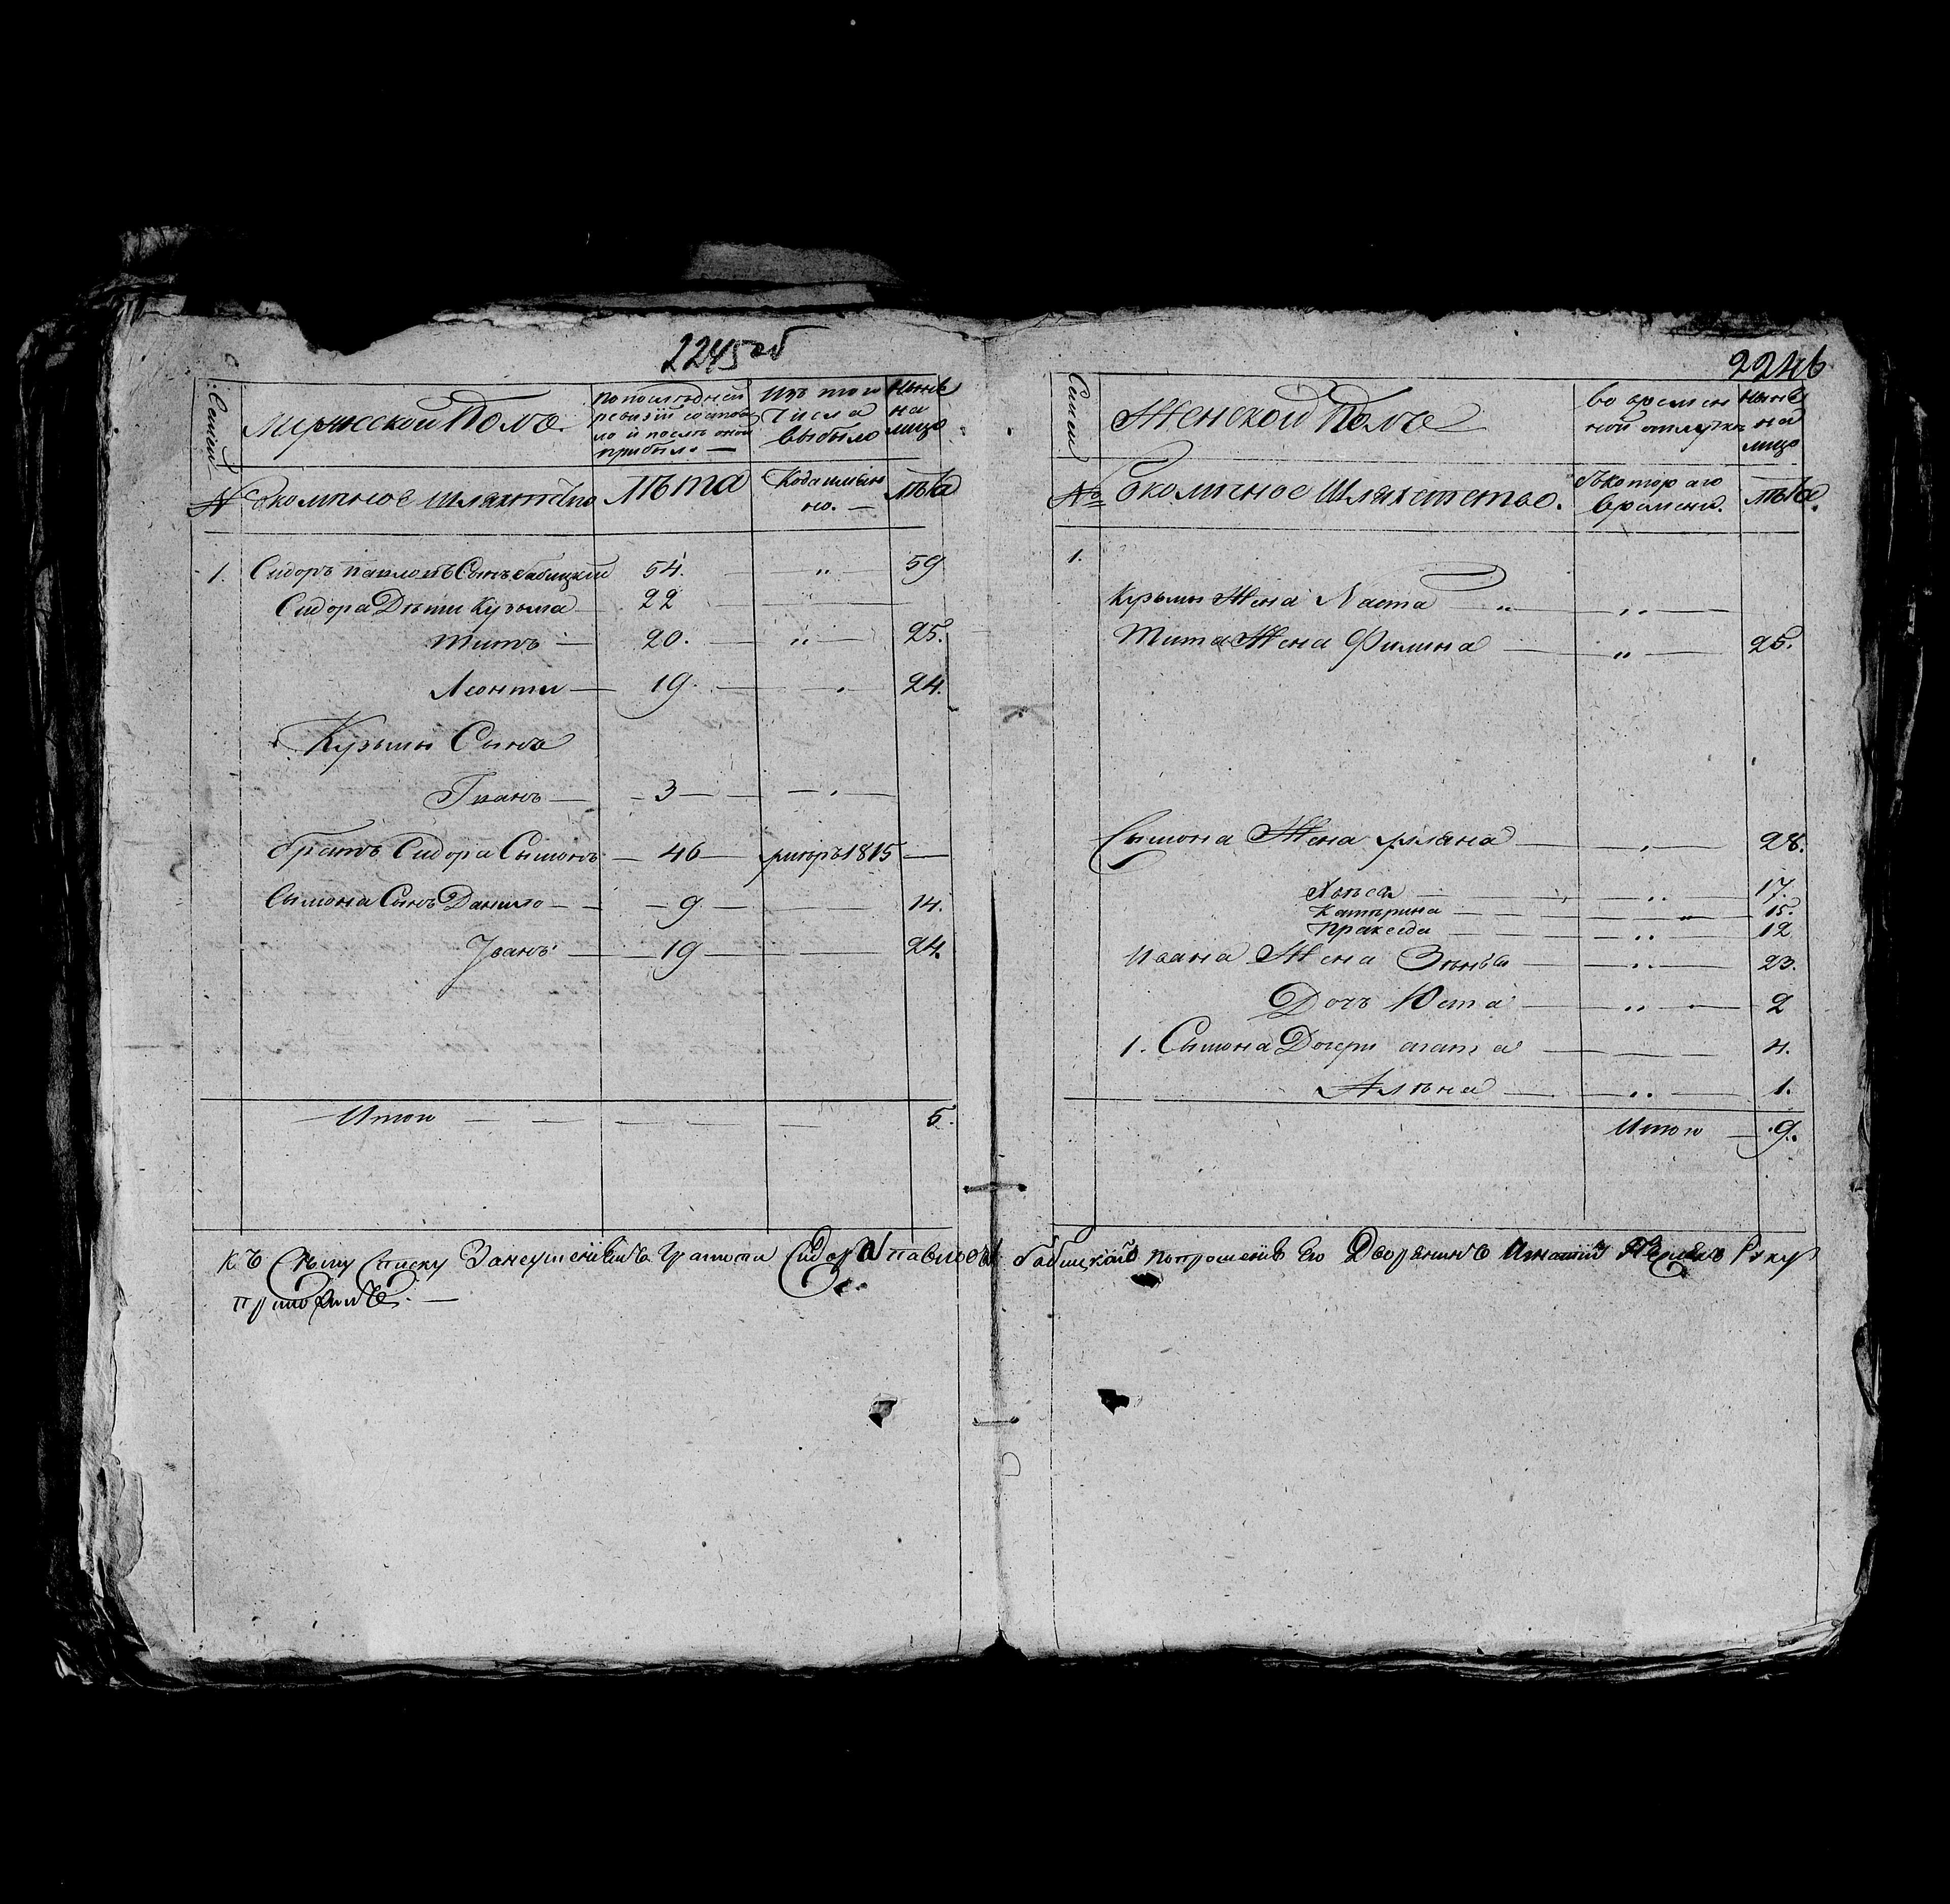 2245об
Семей
Мужеской Полъ
По последней
ревизіи состоя
ло и после оной
прибыло —
Изъ того
числа
выбыло
Ныне
на
лицо
№ Околичное Шляхетство
Лѣта
Когда имянно
но. —
Лѣта
1. Сидоръ Павловъ Сынъ Бабицкий 54. „ 59
Сидора Дети Кузьма — 22 —
Титъ — 20. — „ — 25.
Леонти — 19 — . — 24.
Кузьмы Сынъ
Іванъ — 3 — . —
братъ Сидора Сымонъ — 46 — 1815 —
Сымона Сынъ Данило — 9 — 14.
Іванъ — 19 — 24.
Итого — — — — 5.
2246
Семеи
Женской Полъ
во времен
ной отлучке
Ныне
на
лицо
№ Околичное Шляхетство.
Съ котораго
времени.
Лѣта
1.
Кузьмы Жена Наста — „ — „ —
Тита Жена Филина — „ — 25.
Сымона Жена Уляна — . — 28.
— „ — 17.
Катерина — „ — 15.
Пракседа — „ — 12
Ивана Жена — „ — 23.
Дочъ Юста — „ — 2
1. Сымона Дочери агата — 4.
Алена — „ — 1.
Итого — 9.
Къ Сему Списку Занеумениемъ Грамоты Сидора Павлова Бабицкаго попрошению Его Дворянинъ Игнатий Руку
приложилъ. —